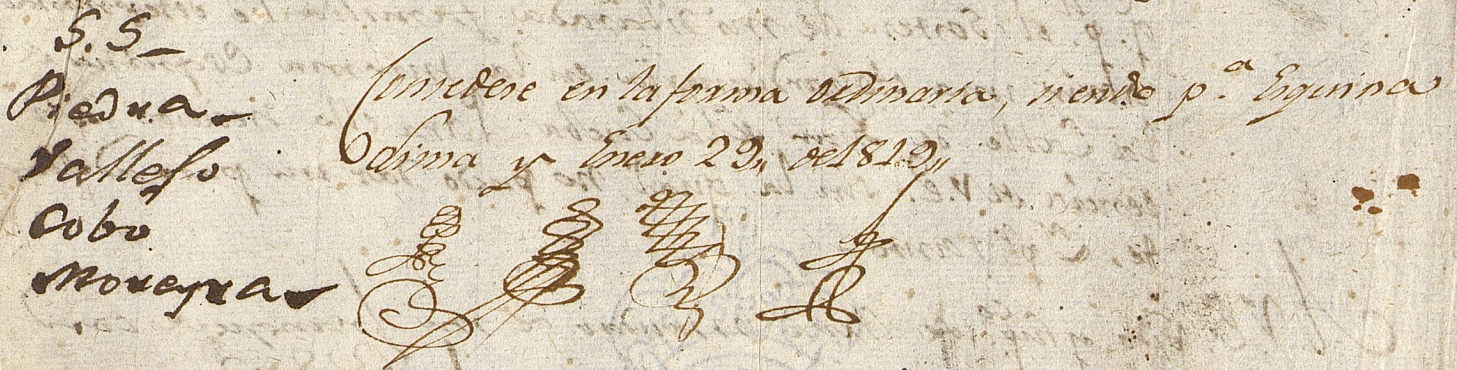 S. S.
Piedra
Vallejo
Cobo
Moreyra
Concedese en la forma ordinaria, siendo p.ª Esquina
Lima y Enero 29,, de 1819,,